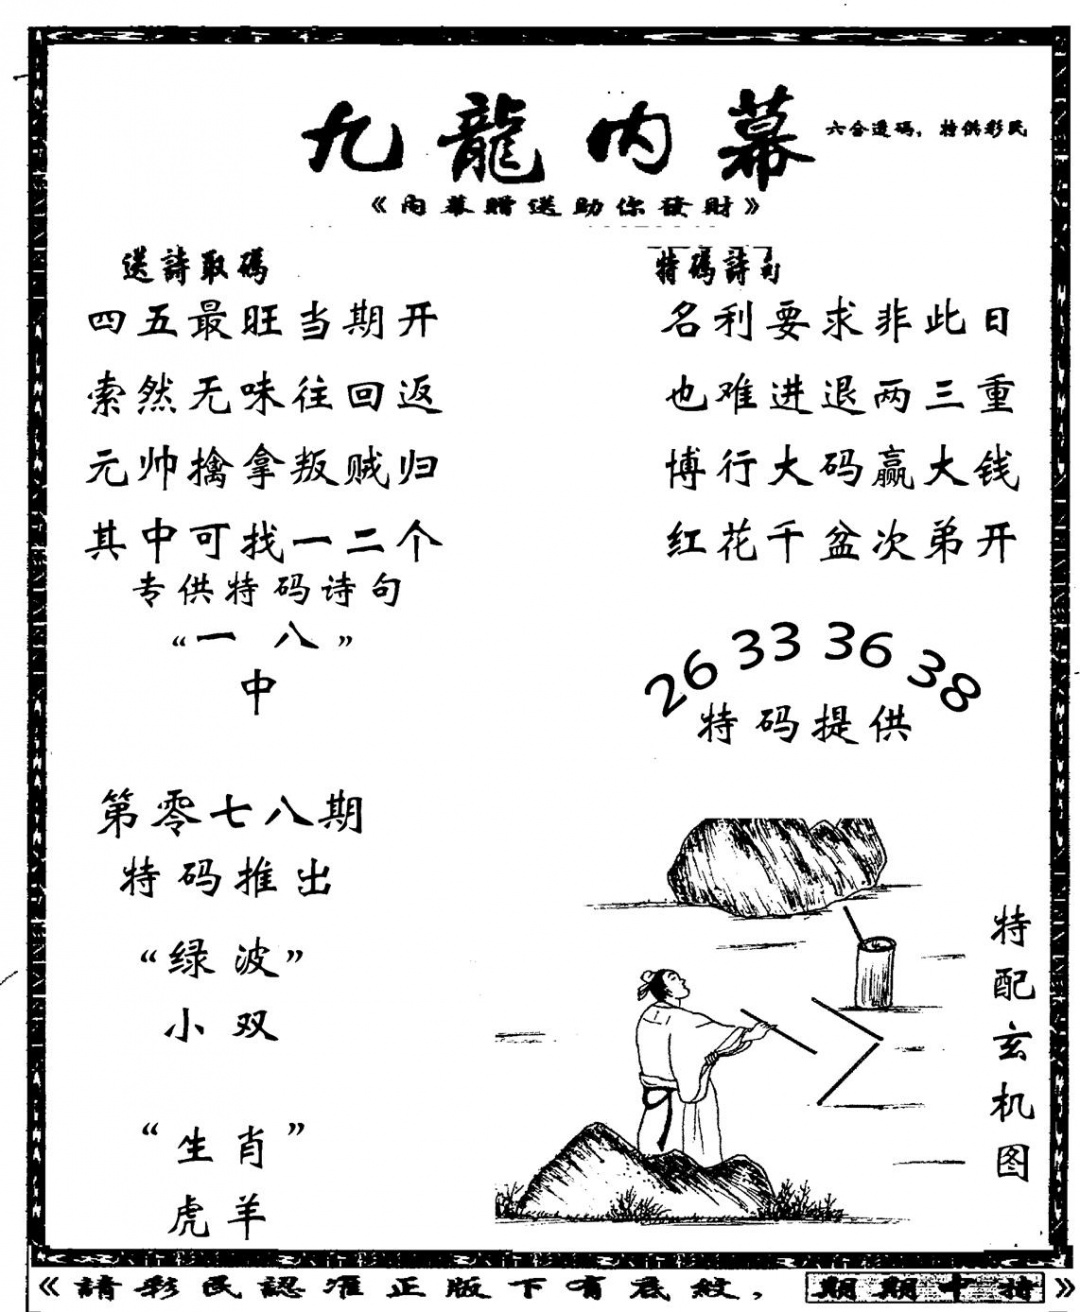 九龍内幕
六合透码，特供彩民
《内幕赠送助你發財》
送詩取碼
四五最旺当期开
索然无味往回返
元帅擒拿叛贼归
其中可找一二个
专供特码诗句
“一八”
中
特碼詩句
名利要求非此日
也难进退两三重
博行大码赢大钱
红花千盆次弟开
26 33 36 38
特码提供
第零七八期
特码推出
“绿波”
小双
“生肖”
虎羊
特配玄机图
《請彩民認准正版下有底紋，期期中特》